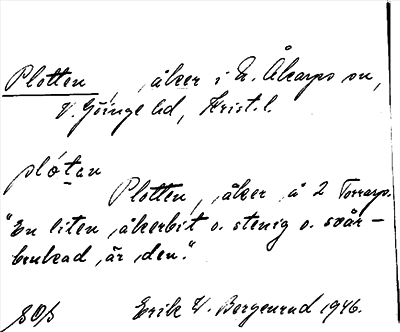 Plotten, åker i N. Åkarps sn,
V. Göinge hd, Krist. l.
plótan
Plotten, åker å 2 Torrarp.
"En liten åkerbit o. stenig o. svår-
brukad är den."
1946.